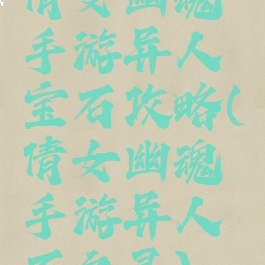 倩女幽魂
手游异人
宝石攻略(
倩女幽魂
手游异人